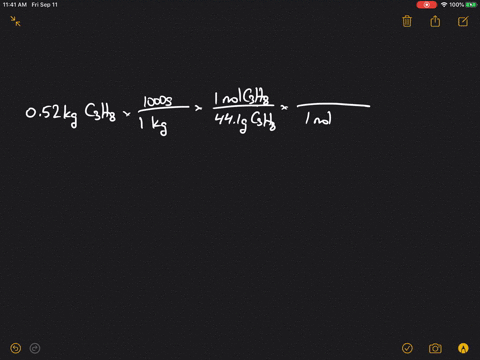 11:41 AM Fri Sep 11
100%
0.52 kg C3H8 × 1000g / 1 kg × 1 mol C3H8 / 44.1g C3H8 × / 1 mol